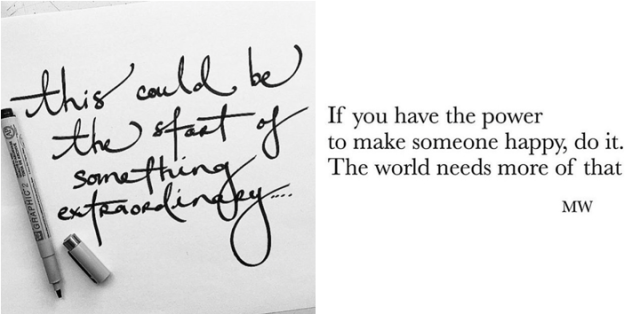 this could be
the start of
something
extraordinary....
GRAPHIC 1
If you have the power
to make someone happy, do it.
The world needs more of that
MW